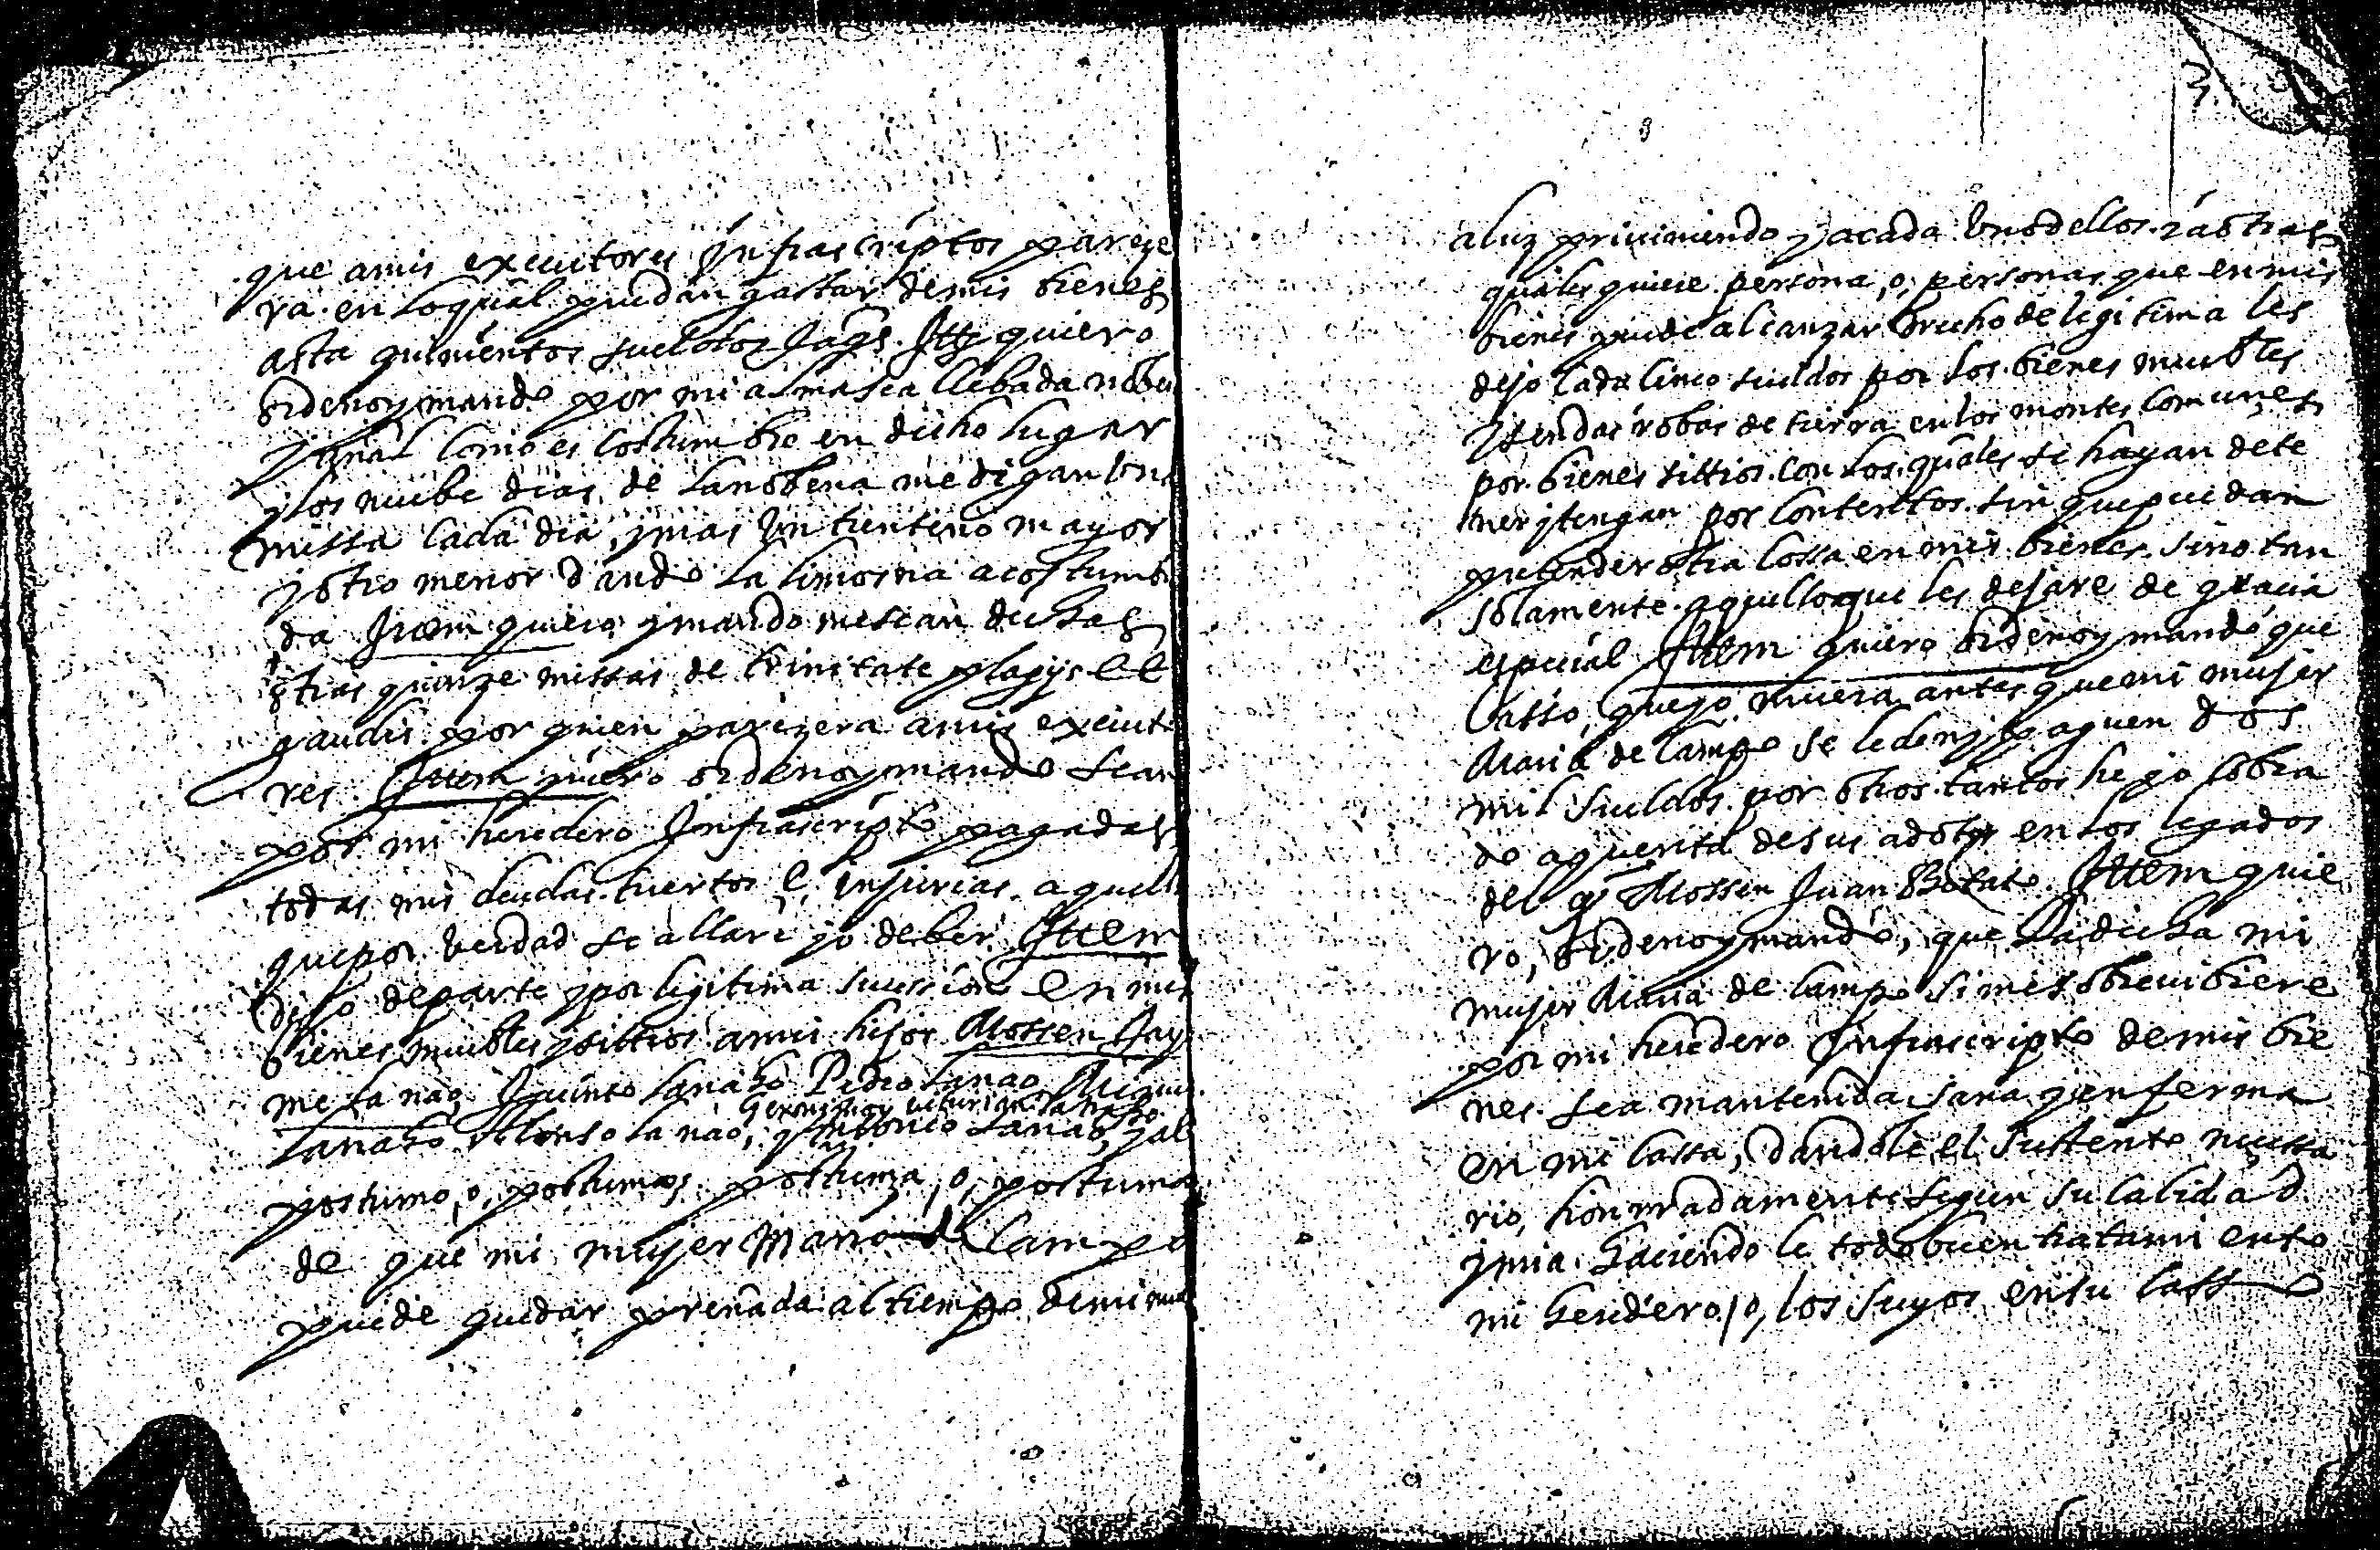 que a mis executores Infrascriptos pareze
ra en lo qual puedan gastar de mis bienes
asta quinientos sueldos Jaqs. Itt quiero
ordeno y mando por mi alma sea llebada nobe
y anal como es costumbre en dicho lugar
y los nuebe dias de la nobena me digan una
missa cada dia, y mas un trenteno mayor
y otro menor dando la limosna acostumb
da Item quiero y mando me sean dichas
otras quinze missas de trinitate plagys ee
gaudis por quien parezera a mis execut
res. Ittem quiero ordeno y mando sean
por mi heredero Infrascripto pagadas
todas mis deudas tuertos e injurias aquell
que por verdad se allare yo deber. Ittem
dejo de parte y por legitima sucession en mis
bienes muebles y sittios a mis hijos Mossen Jay
me lanao, Jacinto lanao Pedro lanao Migue
Geronimo y biturian lanao
lanao Alonso lanao, y Antonio lanao, y al
postumo, o, postumos postuma, o, postumas
de que mi mujer Maria de Campo
puede quedar preñada al tiempo de mi mu
3
a luz priviniendo y a cada uno dellos y a otras
quales quiere persona, o, personas que en mis
bienes puede alcanzar drecho de legitima les
dejo cada cinco sueldos por los bienes muebles
y sendas robas de tierra en los montes comunes
por bienes sittios con los quales se hayan de te
ner y tengan por contentos sin que puedan
pretender otra cossa en mis bienes sino tan
solamente aquello que les dejare de gracia
especial Ittem quiero ordeno y mando que
casso, que yo muera antes que mi mujer
Maria de Campo se le den y paguen dos
mil sueldos por otros tantos he yo cobra
do a quenta de su adote en los legados
del qº Mossen Juan Betato. Ittem quie
ro, ordeno y mando, que la dicha mi
mujer Maria de Campo si me sobrevibiere
por mi heredero Infrascripto de mis bie
nes sea mantenida sana y enferma
en mi cassa, dandole el sustento necessa
rio, honrradamente segun su calidad
y mia haciendo le todo buen tratamiento
mi heredero, o, los suyos en su cass